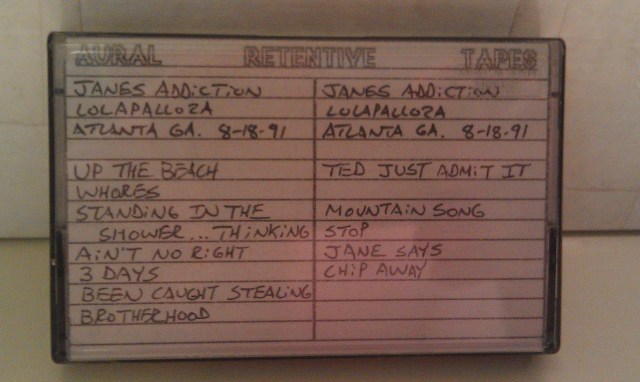 AURAL RETENTIVE TAPES
JANES ADDICTION
LOLAPALLOZA
ATLANTA GA. 8-18-91
UP THE BEACH
WHORES
STANDING IN THE
SHOWER... THINKING
AIN'T NO RIGHT
3 DAYS
BEEN CAUGHT STEALING
BROTHERHOOD
JANES ADDICTION
LOLAPALLOZA
ATLANTA GA. 8-18-91
TED JUST ADMIT IT
MOUNTAIN SONG
STOP
JANE SAYS
CHIP AWAY